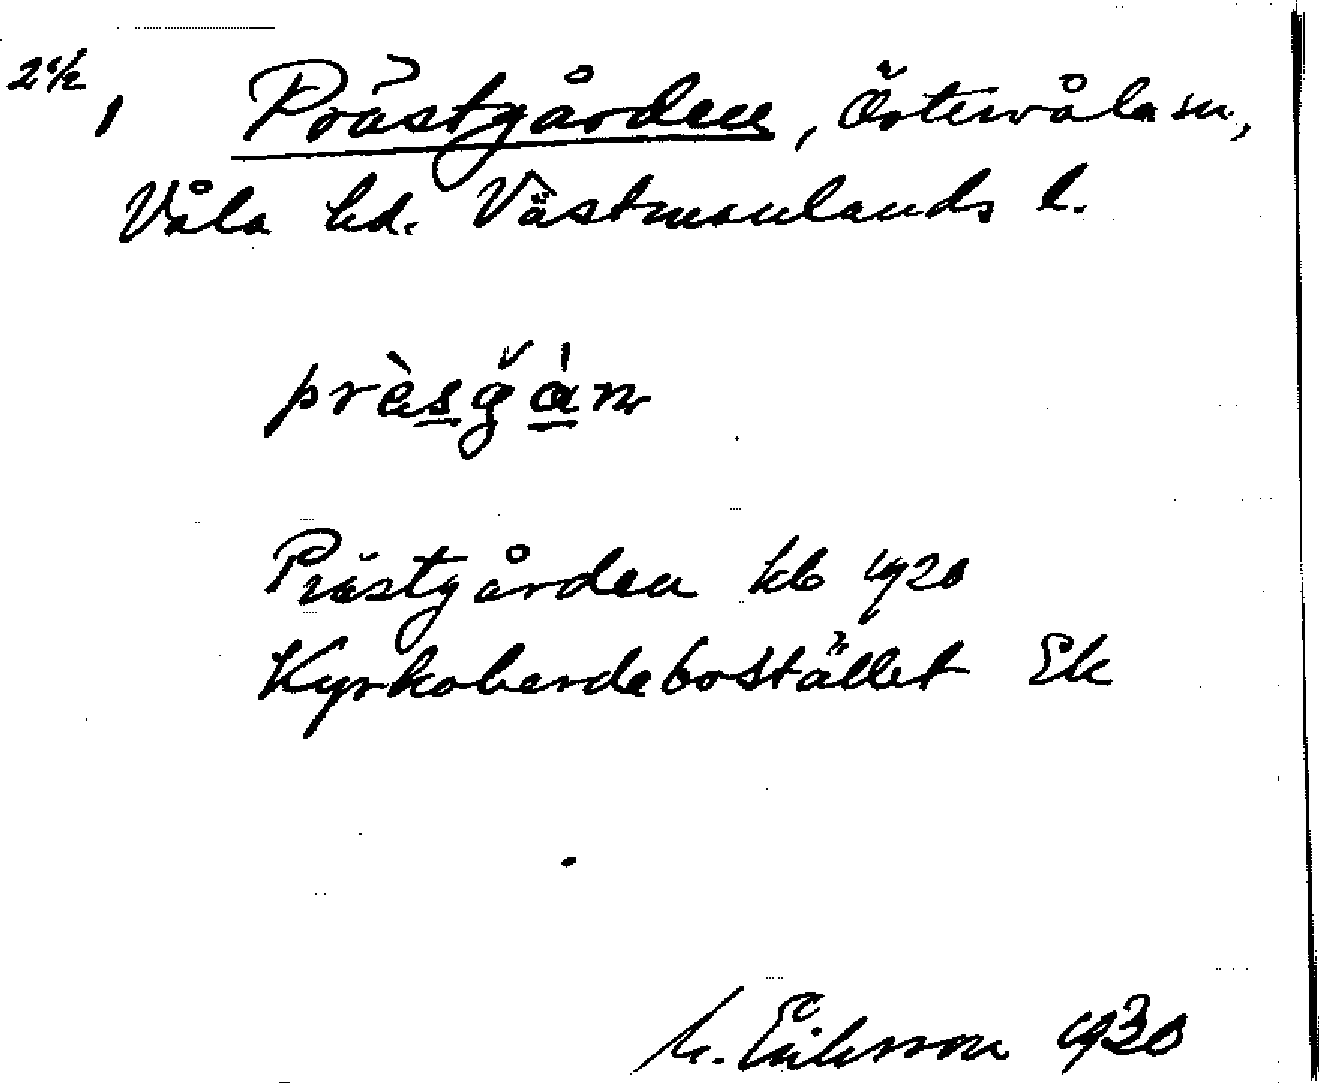 Prästgården, Östervåla sn,
Våla hd. Västmanlands l.
prȁsğán
Prästgården kb 1920
Kyrkoherdebostället Ek
M. Eriksson 1930